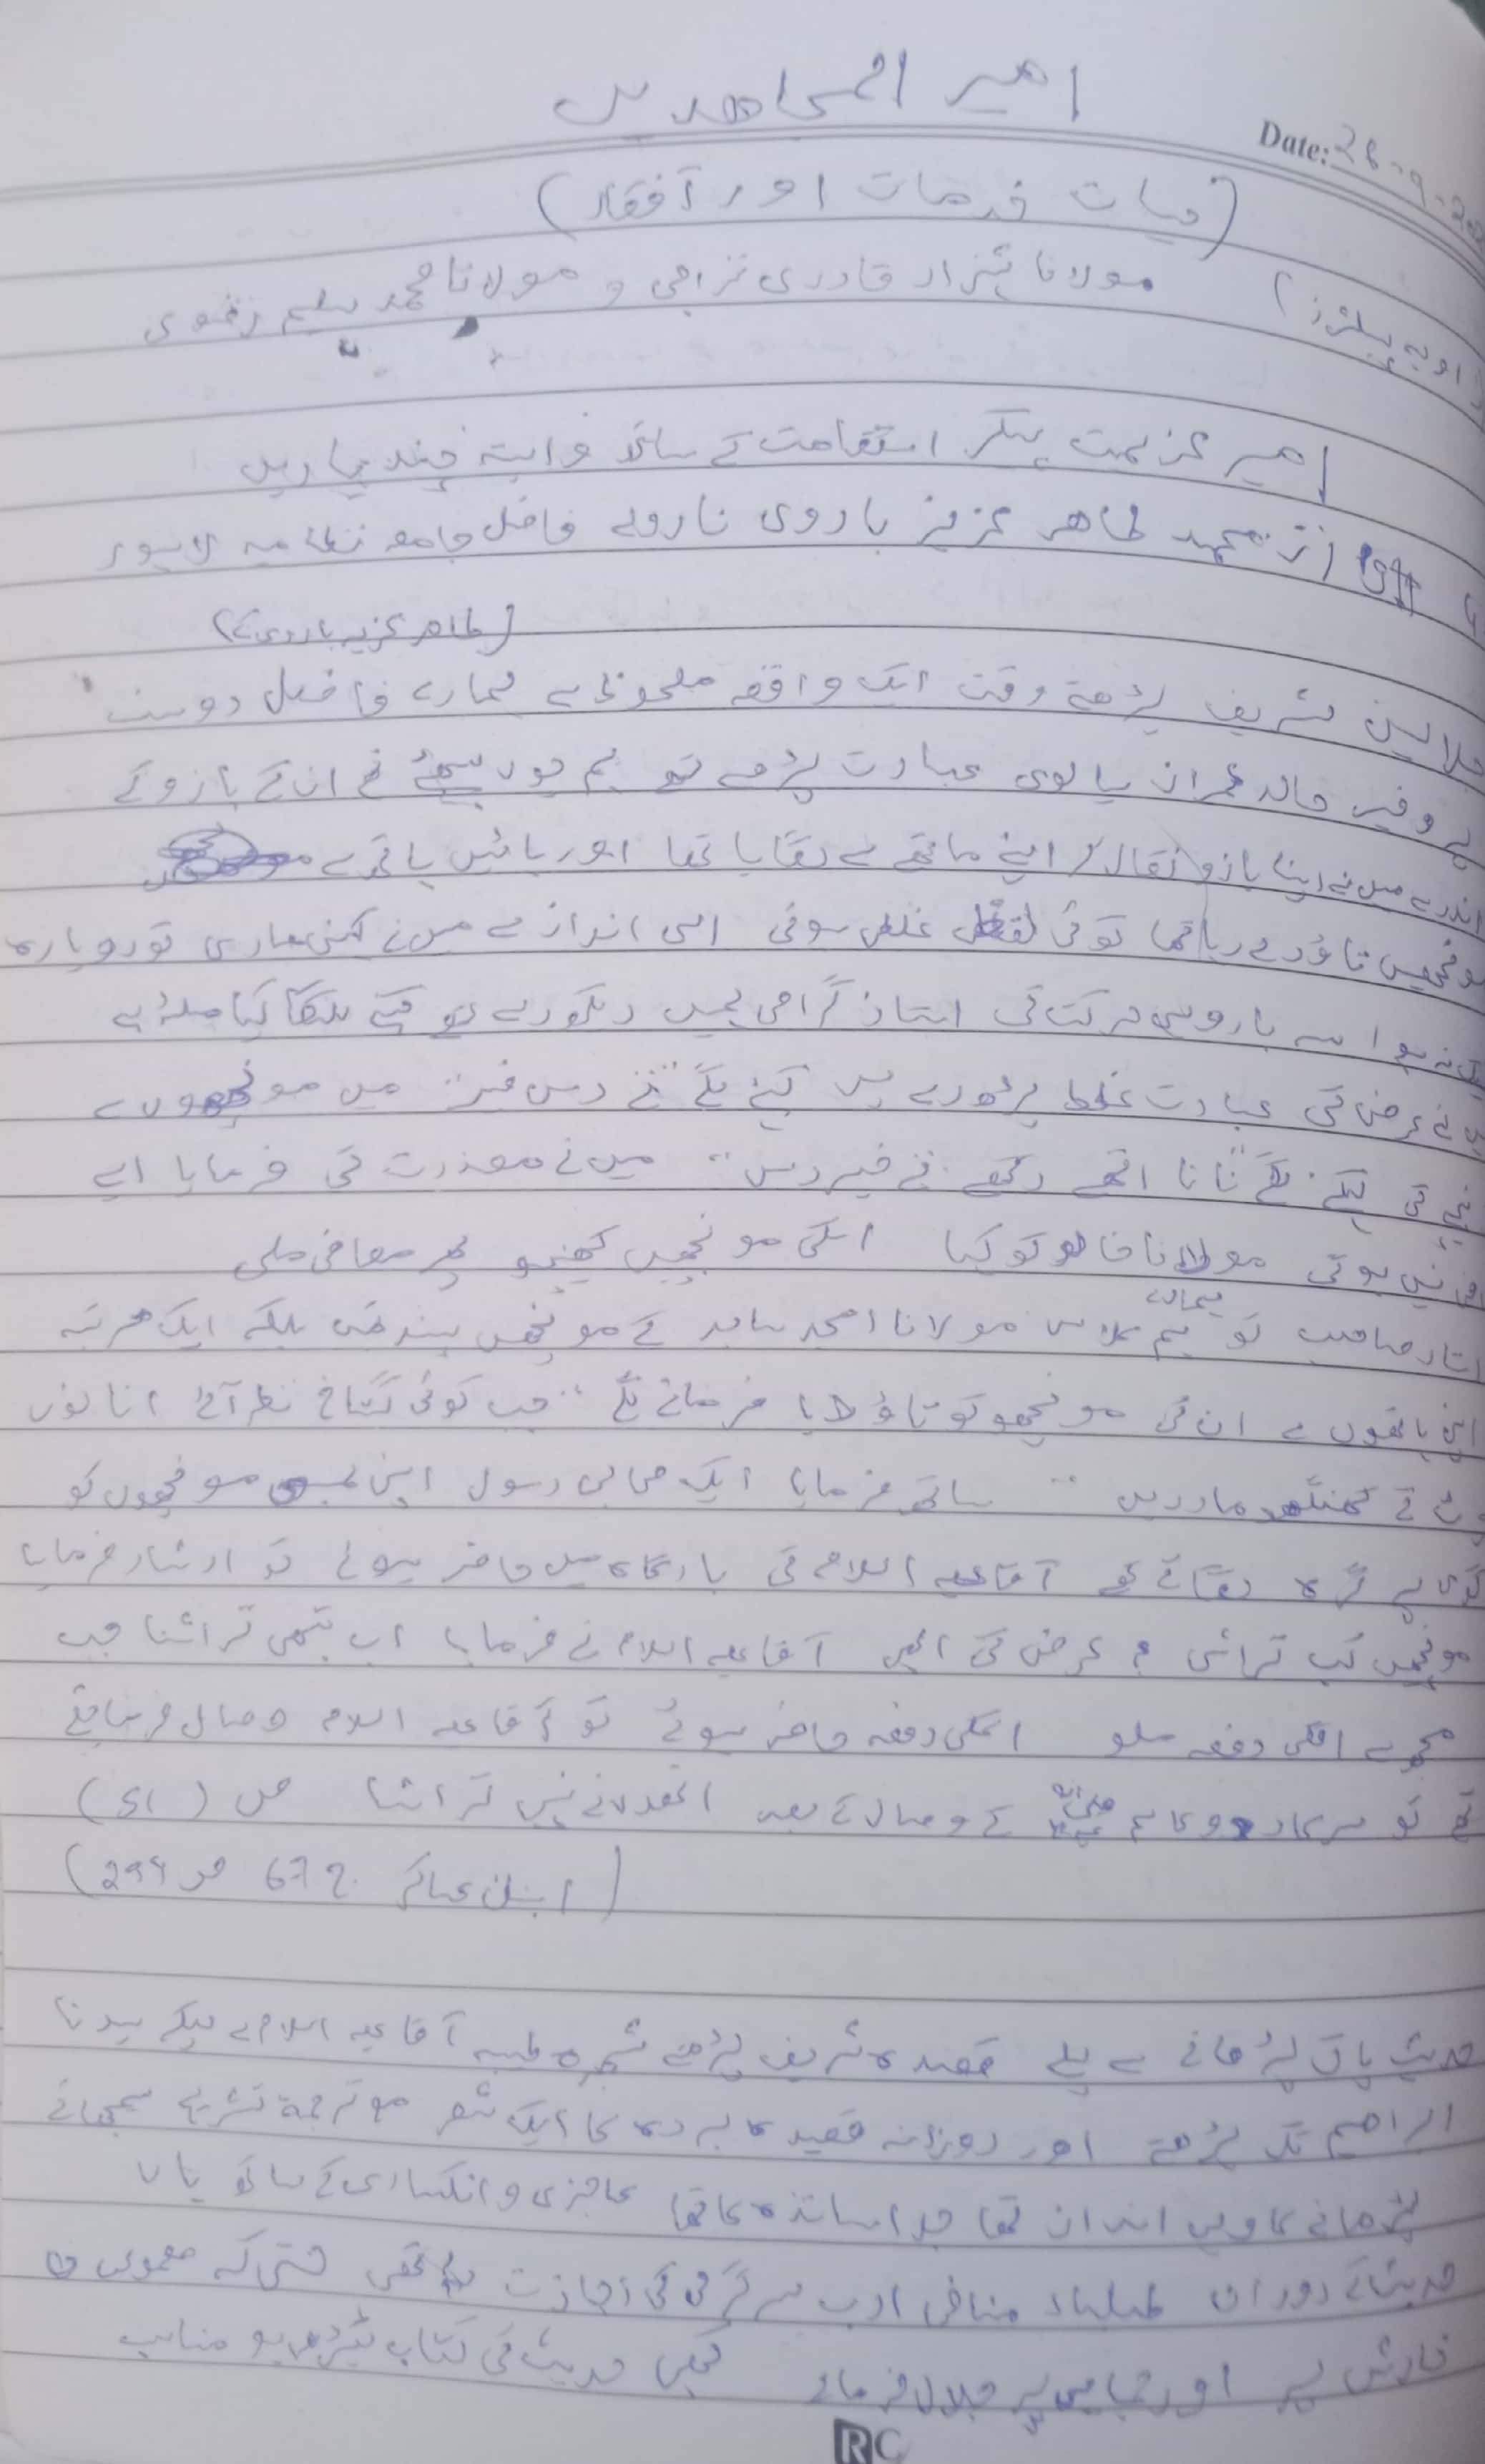 امیر المجاہدین
Date: 26-9-20
(حیات خدمات اور آفکار)
مولانا شہزاد قادری ترابی و مولانا محمد سلیم رضوی
امیر عزیمت پیکر استقامت کے ساتھ وابستہ چند یادیں
از محمد طاہر عزیز باروی ناروے فاضل جامعہ نظامیہ لاہور
(طاہر عزیز باروی)
جلالین شریف پڑھتے وقت ایک واقعہ ملحوظ ہے ہمارے فاضل دوست
پروفیسر خالد عمران یالوی عبارت پڑھتے تو ہم یوں بیٹھے تھے ان کے بازو کے
اندر سے میں نے اپنا بازو نقال کر اپنے ماتھے سے لگایا تھا اور بائیں ہاتھ سے
مونچھیں تاؤ دے رہا تھا کوئی غلطی ہوئی اسی انداز سے میں نے کہنی ماری تو دوبارہ
ہوا سہ بارہ یہی حرکت کی استاذ گرامی ہمیں دیکھ رہے تھے
نے عرض کی عبارت غلط پڑھ رہے ہیں کہنے لگے تے دس فیر میں مونچھوں سے
نے کی کہنے لگے نانا اتھے رکھ تے فیر دس میں نے معذرت کی فرمایا ایسے
نہیں ہوتی مولانا خالد کو کہا اسکی مونچھیں کھینچو پھر معافی ملی
استاد صاحب کو ہمارے ہم کلاس مولانا امجد صابر کے مونچھیں پسند تھی بلکہ ایک مرتبہ
اپنے ہاتھوں سے ان کی مونچھو کو تاؤ دیا فرمانے لگے جب کوئی گستاخ نظر آئے انانوں
تے کھنگھور مادریں ساتھ فرمایا ایک صحابی رسول اپنی مونچھوں کو
گرہ لگاتے تھے آقا علیہ السلام کی بارگاہ میں حاضر ہوئے تو ارشاد فرمایا
مونچھیں کب تراشی ؟ عرض کی ابھی آقا علیہ السلام نے فرمایا اب تبھی تراشنا جب
مجھ سے اگلی دفعہ ملو اگلی دفعہ حاضر ہوئے تو آقا علیہ السلام وصال فرما چکے
تھے تو سرکار دو عالم ﷺ کے وصال کے بعد انھوں نے نہیں تراشا ص (51)
(ابن عساکر ج 67 ص 294)
حدیث پاک پڑھانے سے پہلے قصیدہ شریف پڑھتے شجرہ طیبہ آقا علیہ السلام سے لیکر سیدنا
ابراھیم تک پڑھتے اور روزانہ قصیدہ بردہ کا ایک شعر مع ترجمۃ تشریح سمجھاتے
پڑھانے کا وہی انداز تھا جو اساتذہ کا تھا عاجزی و انکساری کے ساتھ
حدیث کے دوران طلباء منافی ادب سرگرمی کی اجازت نہ تھی حتی کہ معمولی
خارش پر اور جماہی پر جلال فرماتے کبھی حدیث کی کتاب ٹیڑھی ہو مناسب
RC